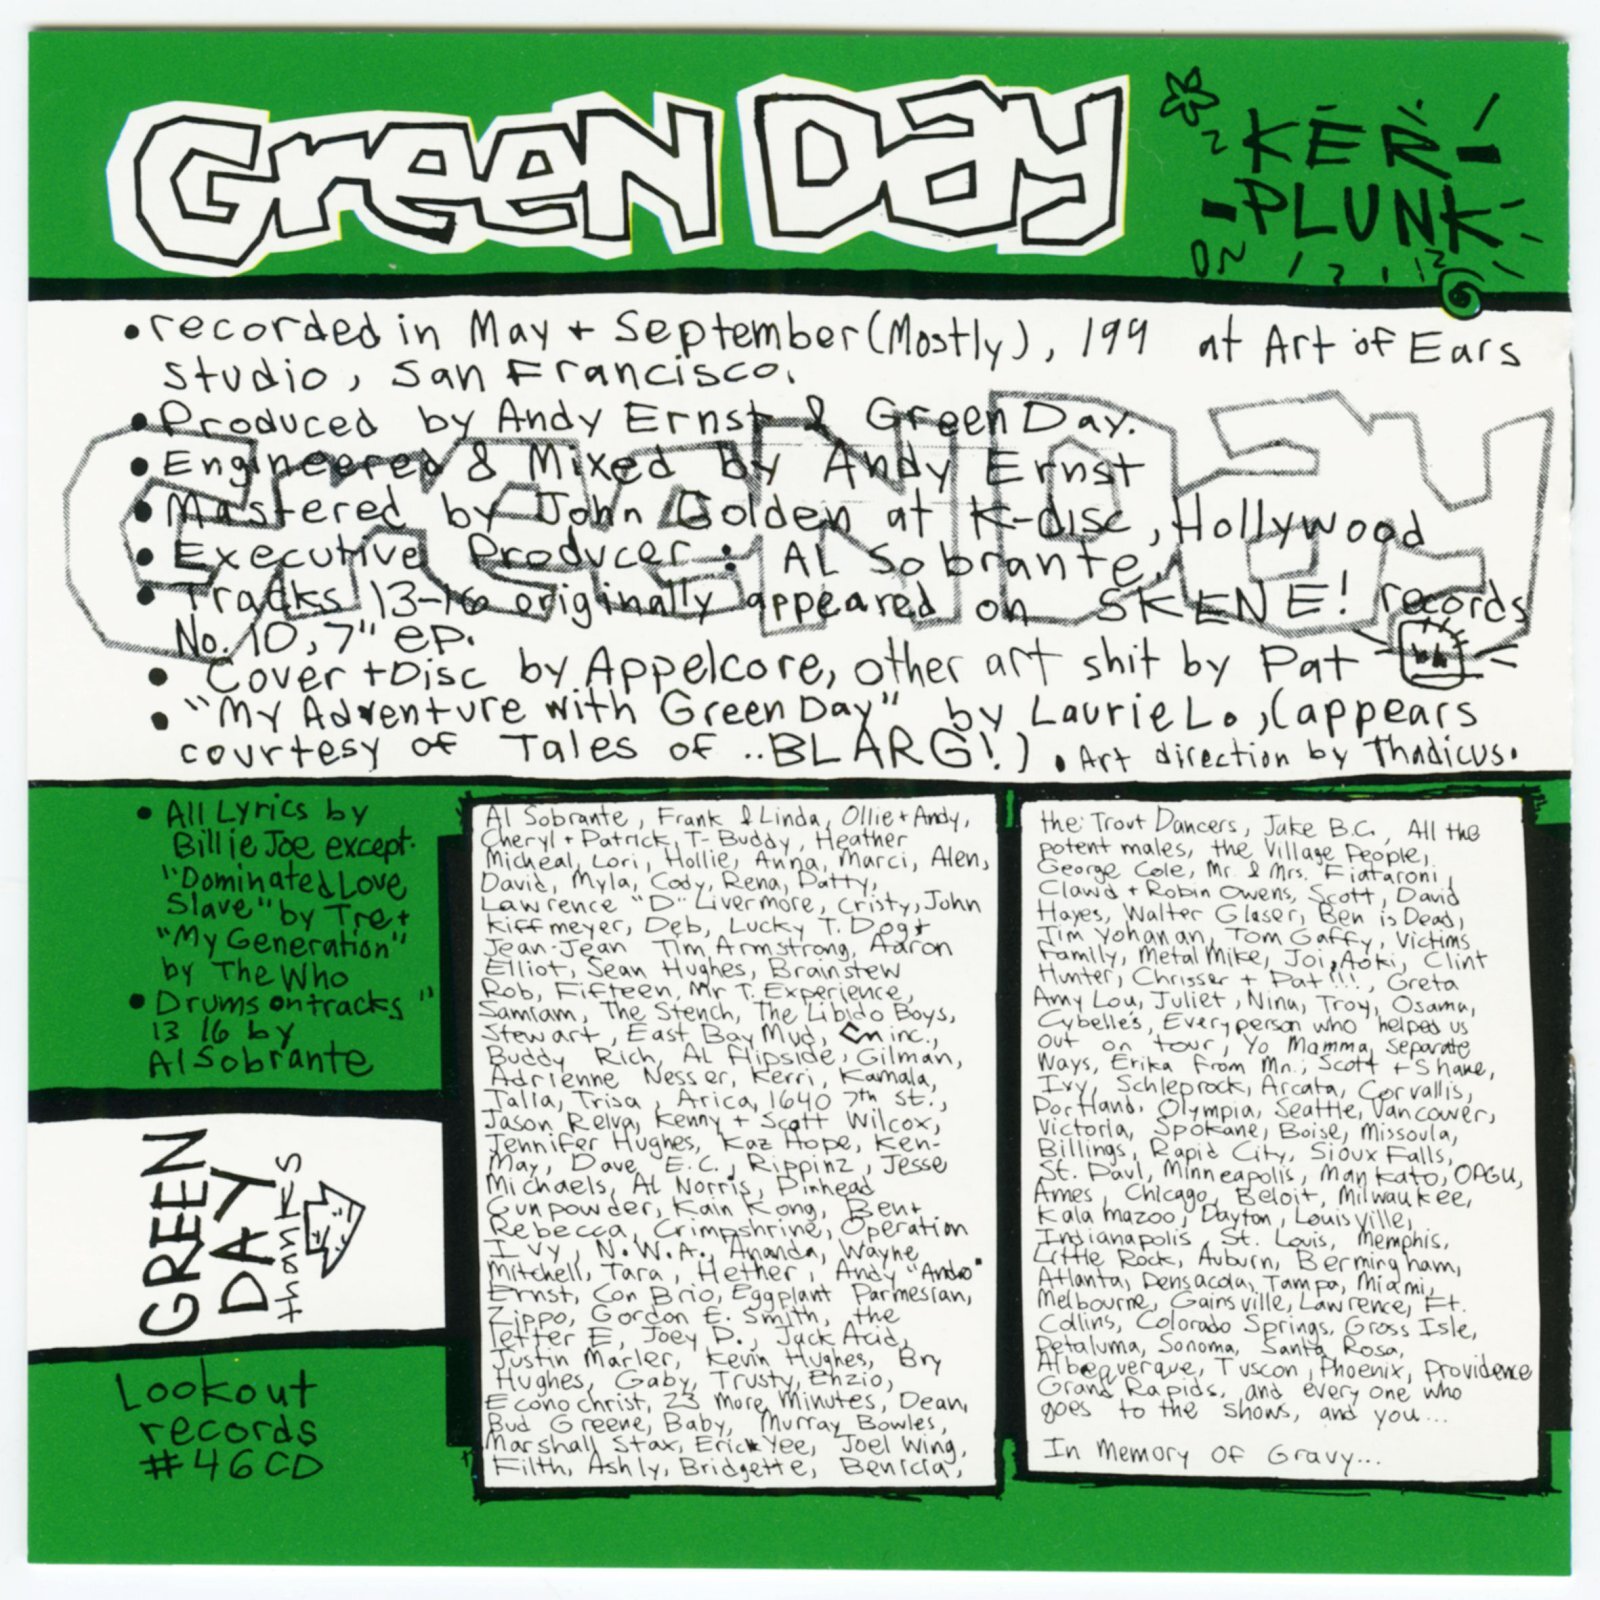 Green Day
KER-
-PLUNK-
• recorded in May + September (Mostly), 199 at Art of Ears
studio, San Francisco.
• Produced by Andy Ernst & Green Day.
• Engineered & Mixed by Andy Ernst
• Mastered by John Golden at K-disc, Hollywood
• Executive Producer: AL Sobrante.
• Tracks 13-16 originally appeared on SKENE! records
No. 10, 7" ep.
• Cover + Disc by Appelcore, other art shit by Pat
• "My Adventure with Green Day" by Laurie L., (appears
courtesy of Tales of ..BLARG!) • Art direction by Thadicus.
• All Lyrics by
Billie Joe except
"Dominated Love
Slave" by Tre +
"My Generation"
by The Who
• Drums on tracks "
13 16 by
Al Sobrante
GREEN
DAY
thanks
Lookout
records
#46CD
Al Sobrante, Frank & Linda, Ollie + Andy,
Cheryl + Patrick, T-Buddy, Heather
Micheal, Lori, Hollie, Anna, Marci, Alen,
David, Myla, Cody, Rena, Patty,
Lawrence "D" Livermore, Cristy, John
Kiffmeyer, Deb, Lucky T. Dog +
Jean-Jean Tim Armstrong, Aaron
Elliot, Sean Hughes, Brainstew
Rob, Fifteen, Mr T. Experience,
Samiam, The Stench, The Libido Boys,
Stewart, East Bay Mud, inc.,
Buddy Rich, AL Flipside, Gilman,
Adrienne Nesser, Kerri, Kamala,
Talia, Trisa, Arica, 1640 7th st.,
Jason Relva, Kenny + Scott Wilcox,
Jennifer Hughes, Kaz Hope, Ken-
May, Dave E.C., Rippinz, Jesse
Michaels, Al Norris, Pinhead
Gunpowder, Kain Kong, Ben +
Rebecca, Crimpshrine, Operation
Ivy, N.W.A., Ananda, Wayne
Mitchell, Tara, Hether, Andy "Andro"
Ernst, Con Brio, Eggplant Parmesian,
Zippo, Gordon E. Smith, the
letter E, Joey P., Jack Acid,
Justin Marler, Kevin Hughes, Bry
Hughes, Gaby, Trusty, Enzio,
Econochrist, 23 More Minutes, Dean,
Bud Greene, Baby, Murray Bowles,
Marshall Stax, Erick Yee, Joel Wing,
Filth, Ashly, Bridgette, Benicia,
the Trout Dancers, Jake B.C., All the
potent males, the Village People,
George Cole, Mr. & Mrs. Fiataroni,
Clawd + Robin Owens, Scott, David
Hayes, Walter Glaser, Ben is Dead,
Tim Yohanan, Tom Gaffy, Victims
Family, Metal Mike, Joi, Aoki, Clint
Hunter, Chrisser + Pat!!!, Greta
Amy Lou, Juliet, Nina, Troy, Osama,
Cybelle's, Everyperson who helped us
out on tour, Yo Mamma, Separate
Ways, Erika from Mn., Scott + Shane,
Ivy, Schleprock, Arcata, Corvallis,
Portland, Olympia, Seattle, Vancouver,
Victoria, Spokane, Boise, Missoula,
Billings, Rapid City, Sioux Falls,
St. Paul, Minneapolis, Mankato, OAGU,
Ames, Chicago, Beloit, Milwaukee,
Kalamazoo, Dayton, Louisville,
Indianapolis, St. Louis, Memphis,
Little Rock, Auburn, Bermingham,
Atlanta, Pensacola, Tampa, Miami,
Melbourne, Gainsville, Lawrence, Ft.
Collins, Colorado Springs, Gross Isle,
Petaluma, Sonoma, Santa Rosa,
Albequerque, Tuscon, Phoenix, Providence
Grand Rapids, and every one who
goes to the shows, and you...
In Memory of Gravy...